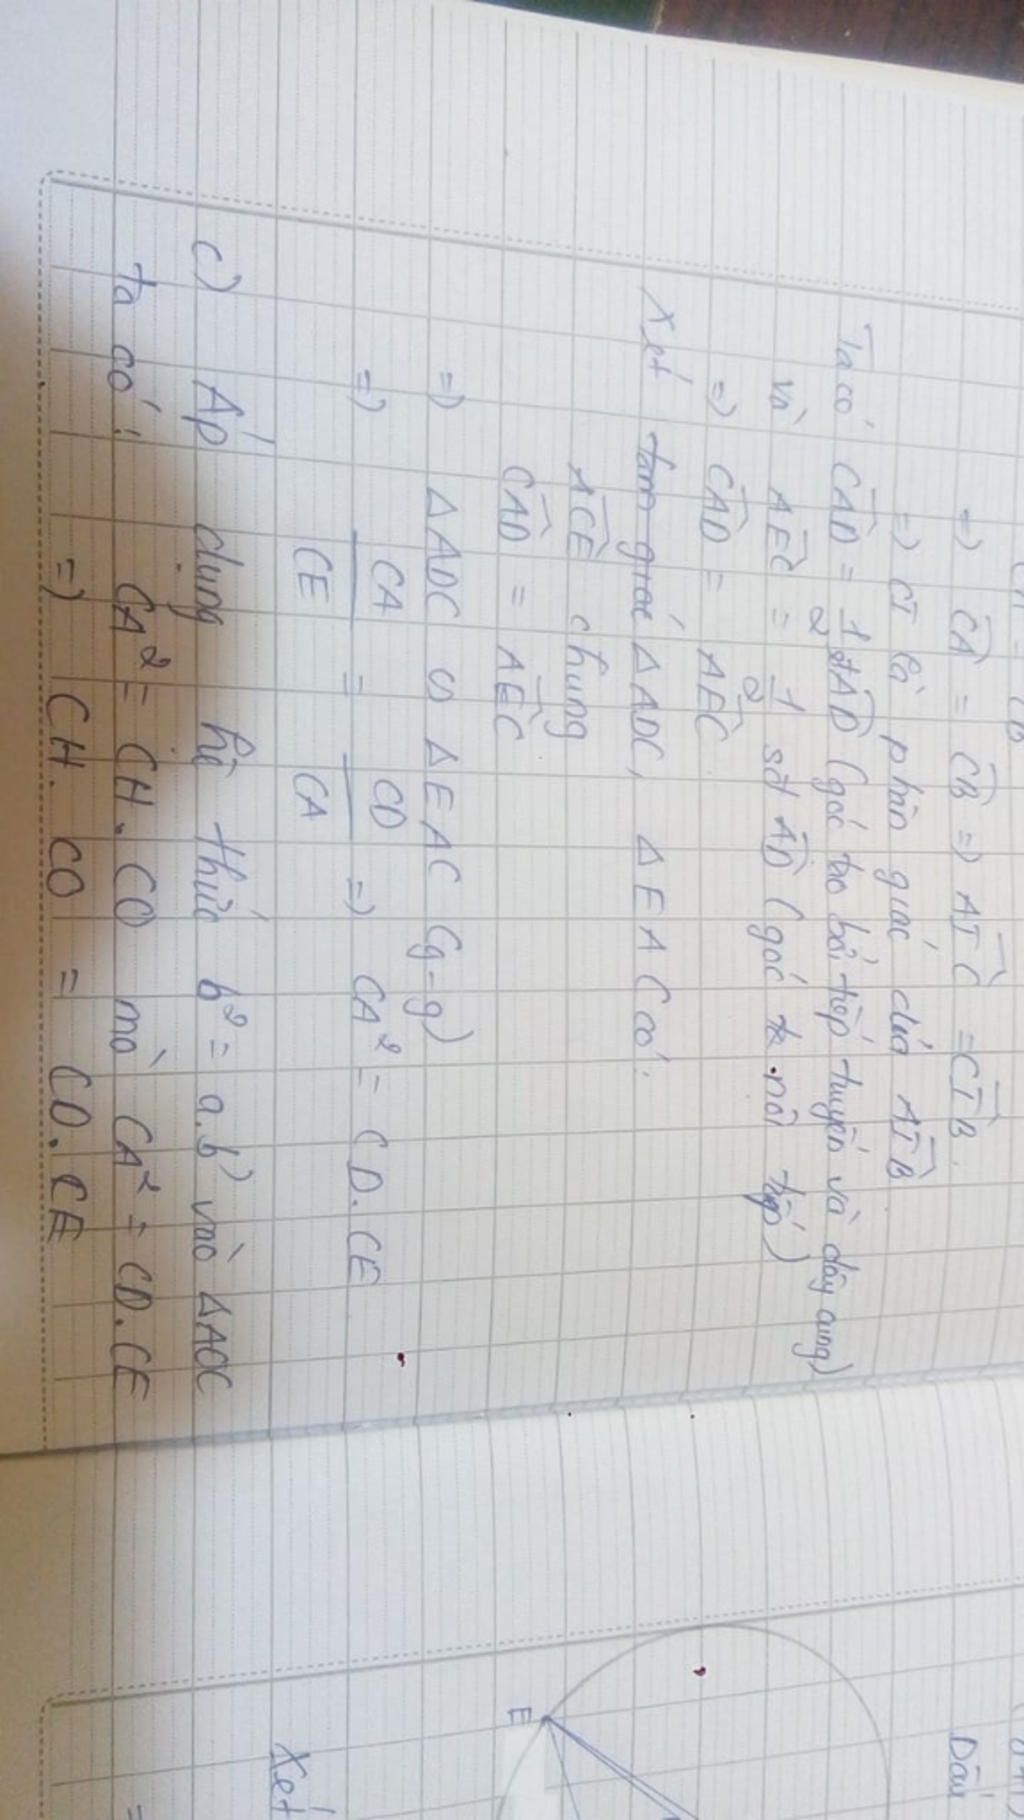 => CA = CB => ATC = CTB.
=> CT là phân giác của ATB
Ta có CAD = 1/2 sđ AD (góc tạo bởi tiếp tuyến và dây cung)
và AEC = 1/2 sđ AD (góc nội tiếp)
=> CAD = AEC
Xét tam giác ΔADC, ΔEAC có:
ACE chung
CAD = AEC
=> ΔADC ∽ ΔEAC (g-g)
=> CA/CE = CD/CA => CA² = CD.CE
c) Áp dụng hệ thức b² = a.b' vào ΔAOC
ta có: CA² = CH.CO mà CA² = CD.CE
=> CH.CO = CD.CE
Dấu
E
Xét
=